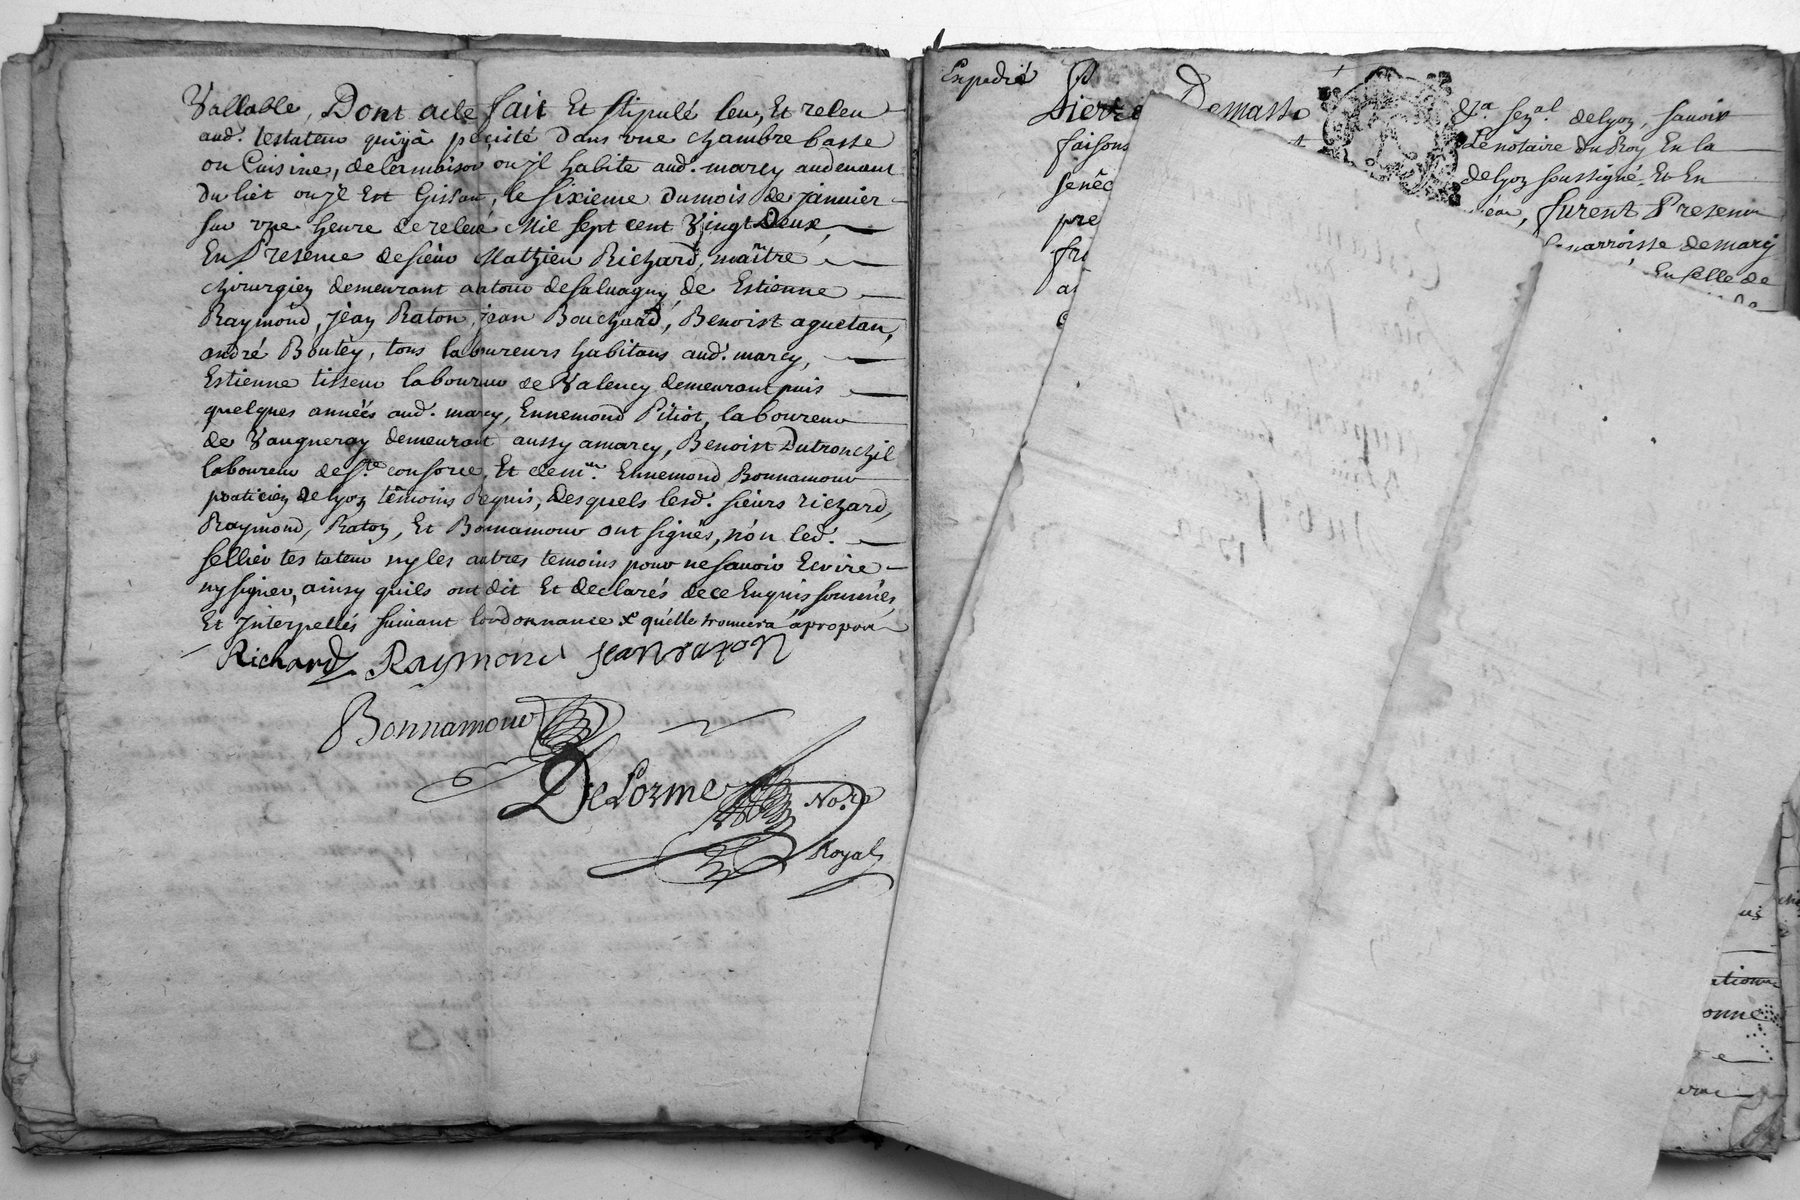 Vallable, Dont acte fait Et stipulé leu, Et releu
aud. testateur quy a persisté Dans une chambre basse
ou Cuisine, de la maison ou jl habite aud. marcy audevant
du liet ou jl Est Gissant, le sixieme du mois de janvier
sur une heure de relevé Mil sept cent Vingt Deux,
En Presence de sieur Mathieu Richard, maître
chirurgien demeurant a la tour de saluagny, de Estienne
Raymond, jean Raton, jean Bouchard, Benoist aguetan,
andré Boutey, tous laboureurs habitans aud. marcy,
Estienne tisseur laboureur de Valency demeurant puis
quelques années aud. marcy, Ennemond Pitiot, laboureur
de Vaugneray demeurant aussy a marcy, Benoist Dutronchil
laboureur de Ste consorce, Et de mre. Ennemond Bonnamour
praticien de lyon têmoins Requis, desquels lesd. sieurs richard,
Raymond, Raton, Et Bonnamour ont signés, non led.
sellier testateur ny les autres temoins pour ne sauoir Ecrire
ny signer, ainsy quils ont dit Et declarés de ce Enquis sommés
Et jnterpellés suiuant lordonnance x quelle trouuera apropos
Richard Raymond jean raton
Bonnamour
DeLorme Nore
Royal
Expedié
Pierre Demasso
sen.al de lyon, sauoir
faisons
Le notaire du Roy En la
senêc
de lyon soussigné, Et En
pre
furent Presents
parroisse de marcy
En celle de